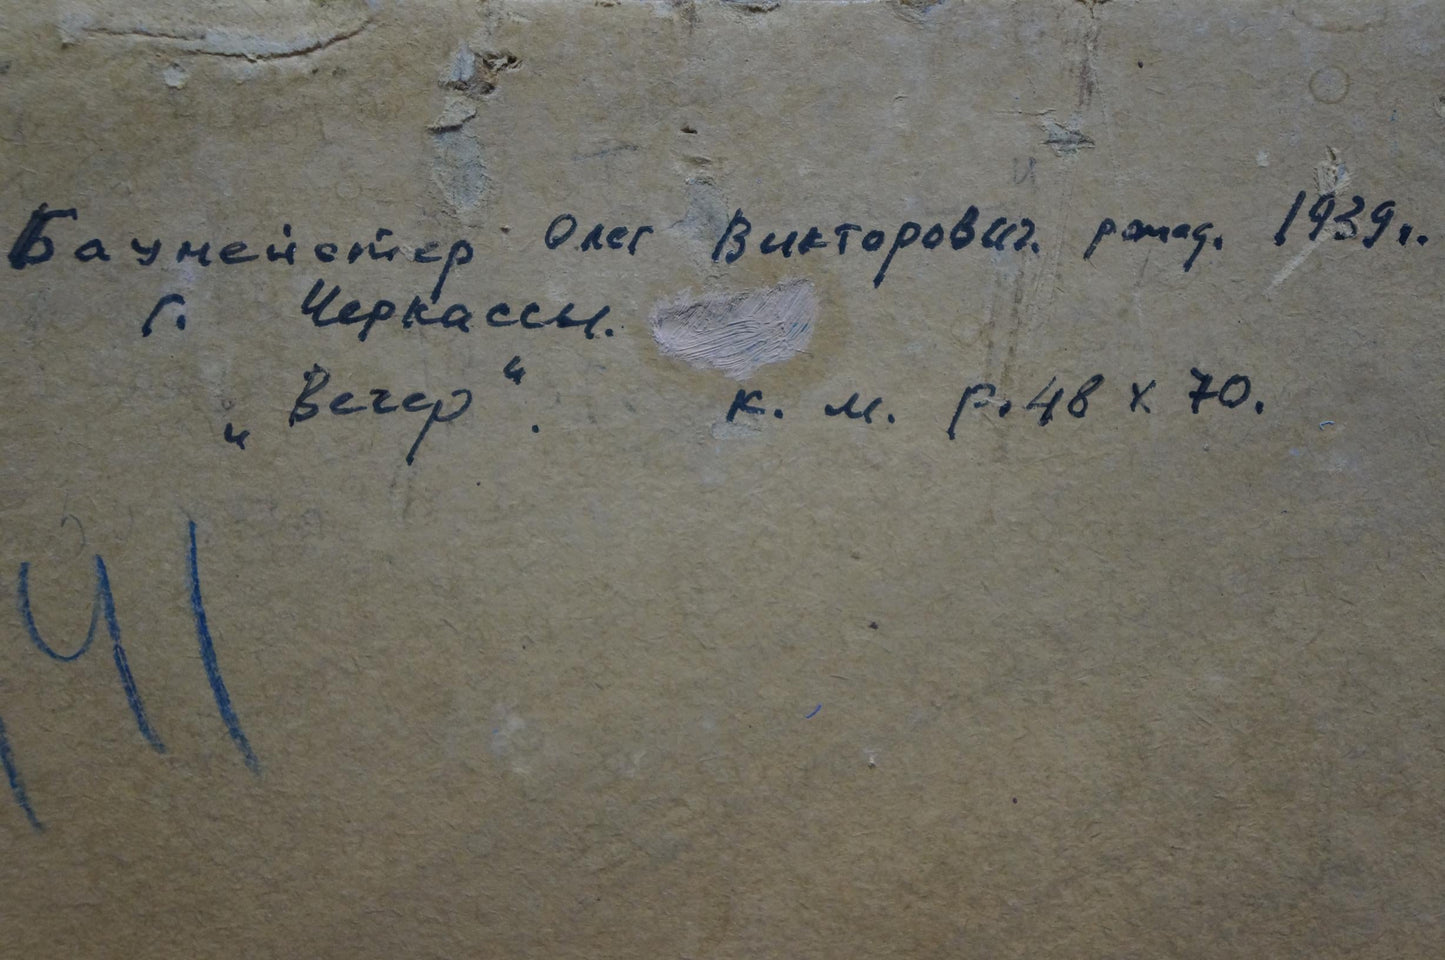 Баумейстер Олег Викторович. рожд. 1939г..
г. Черкассы.
„Вечер“. к. м. р. 48 х 70.
41